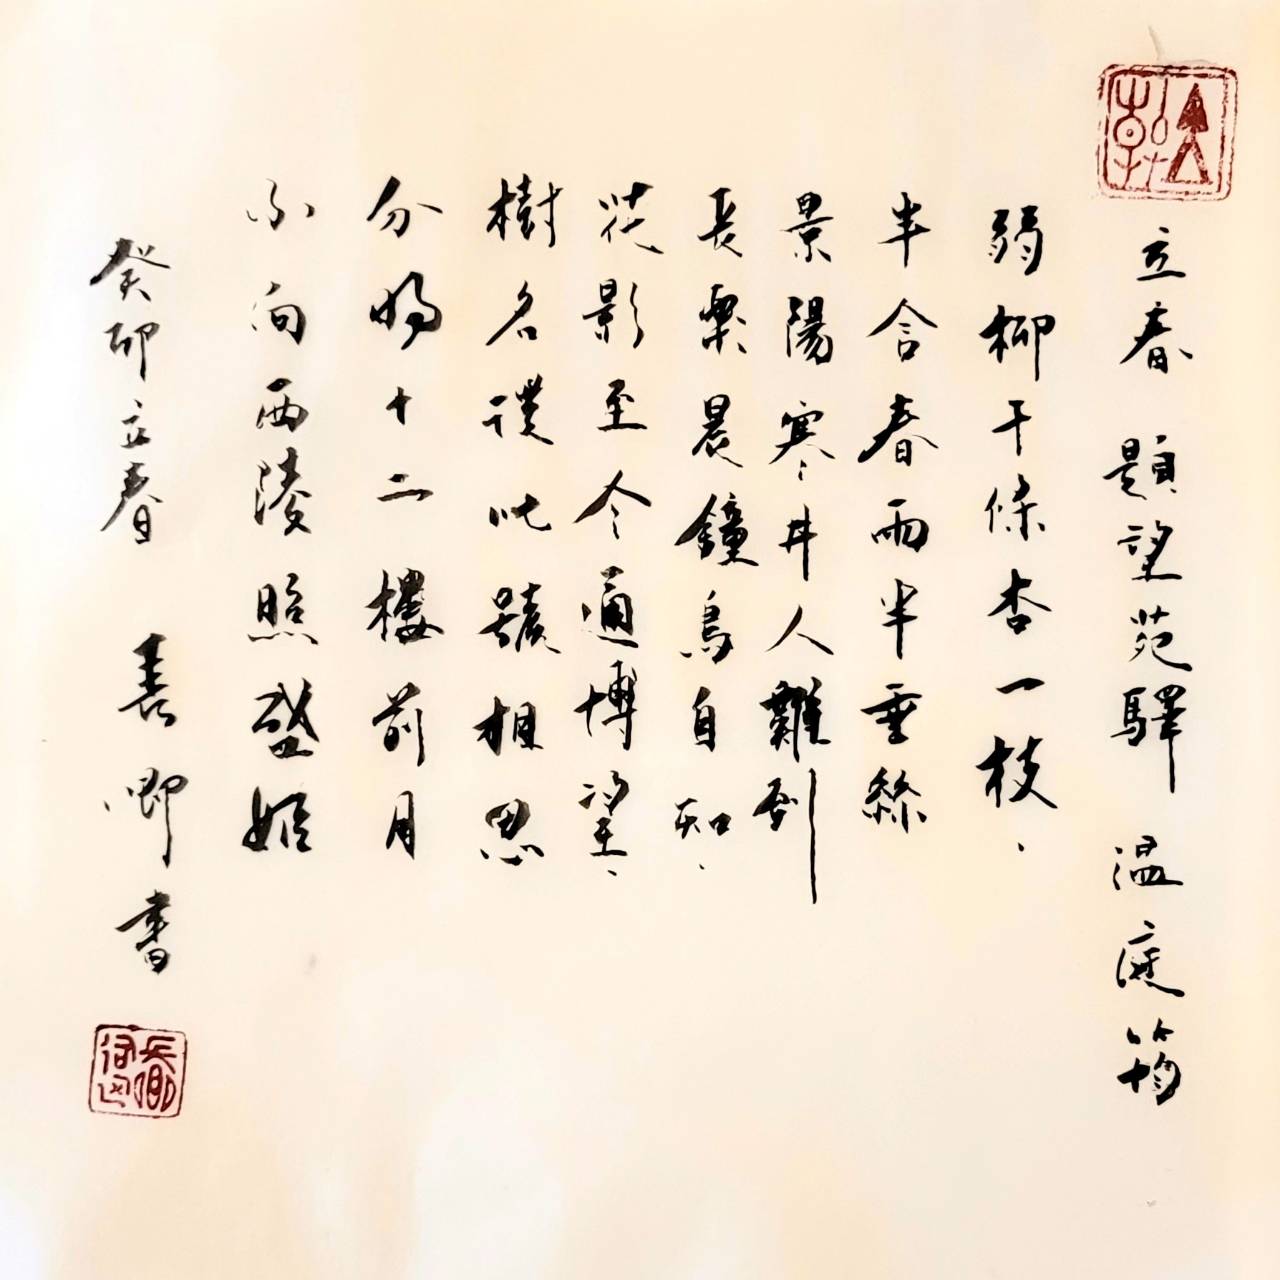 立春 題望苑驛 温庭筠
弱柳千條杏一枝、
半含春雨半垂絲
景陽寒井人難到
長樂晨鐘鳥自知、
花影至今通博望、
樹名從此號相思
分明十二樓前月
不向西陵照盛姬
癸卯立春 長卿書